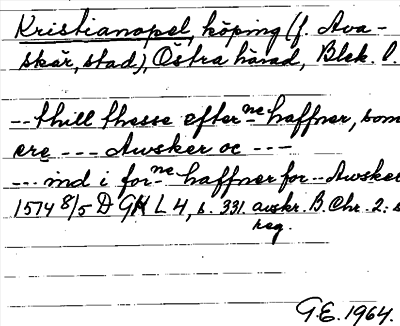 Kristianopel, köping (f. Ava-
skär, stad), Östra härad, Blek. l.
-- thill thesse efterne haffner, som
ere --- Awsker oc ---
--- ind i forne haffner for -- Awsker
1514 8/5 D GH L 4, s. 331. avskr. B. Chr. 2: s
reg.
G.E. 1964.